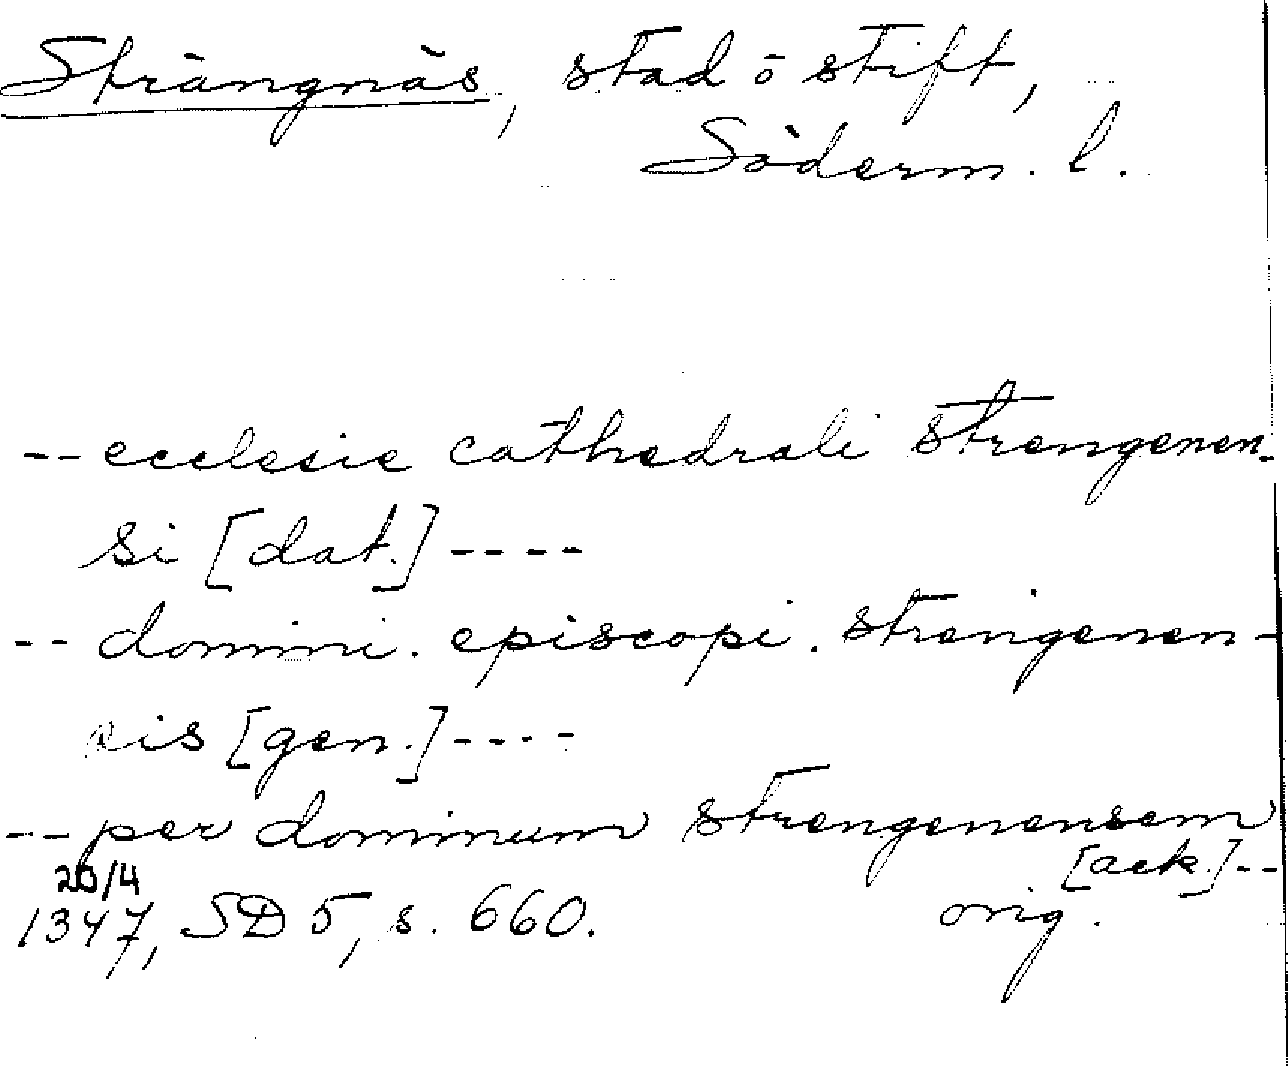 Strängnäs, stad o stift,
Söderm. l.
-- ecclesie cathedrali strengenen-
si [dat.] ----
-- domini. episcopi. strengenen-
sis [gen.] ----
-- per dominum strengenensem
[ack.] --
20/4
1347, SD 5, s. 660. orig.